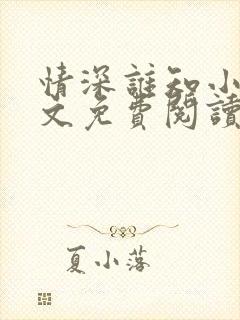 情深誰知小
文免費閱讀
夏小落